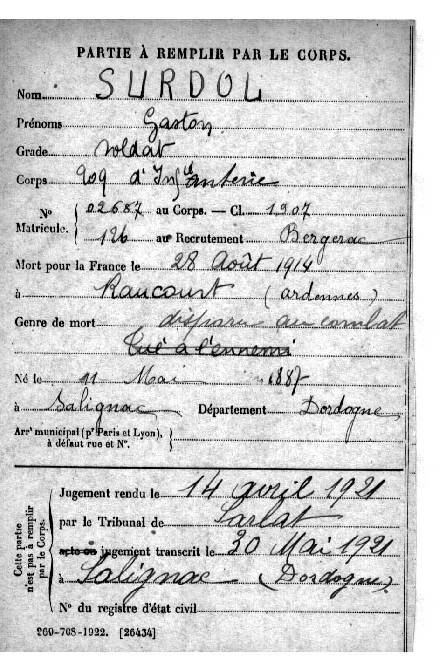 PARTIE À REMPLIR PAR LE CORPS.
Nom SURDOL
Prénoms Gaston
Grade soldat
Corps 209 d'Infanterie
N° Matricule. 02687 au Corps. — Cl. 1907
126 au Recrutement Bergerac
Mort pour la France le 28 Août 1914
à Raucourt (ardennes)
Genre de mort disparu au combat
Tué à l'ennemi
Né le 11 Mai 1887
à Salignac Département Dordogne
Arrᵗ municipal (pʳ Paris et Lyon), à défaut rue et N°.
Cette partie n'est pas à remplir par le Corps.
Jugement rendu le 14 avril 1921
par le Tribunal de Sarlat
acte ou jugement transcrit le 30 Mai 1921
à Salignac (Dordogne)
N° du registre d'état civil
260-708-1922. [26434]